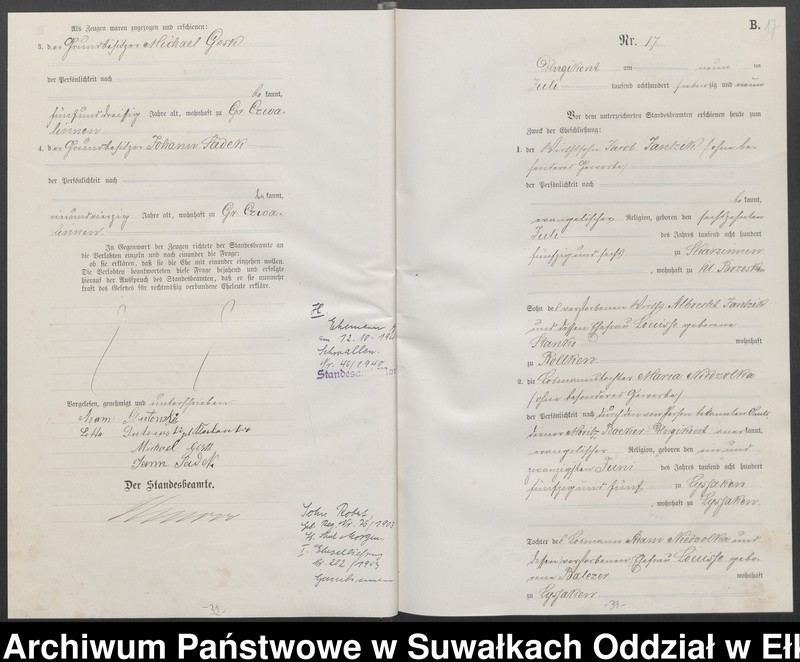 Als Zeugen waren zugezogen und erschienen:
3. der Grundbesitzer Michael Gosk
der Persönlichkeit nach
be kannt,
fünfunddreißig Jahre alt, wohnhaft zu Gr. Czwa-
linnen
4. der Grundbesitzer Johann Sadek
der Persönlichkeit nach
kannt,
vierundvierzig Jahre alt, wohnhaft zu Gr. Czwa-
linnen.
In Gegenwart der Zeugen richtete der Standesbeamte an
die Verlobten einzeln und nach einander die Frage:
ob sie erklären, daß sie die Ehe mit einander eingehen wollen.
Die Verlobten beantworteten diese Frage bejahend und erfolgte
hierauf der Ausspruch des Standesbeamten, daß er sie nunmehr
kraft des Gesetzes für rechtmäßig verbundene Eheleute erkläre.
Vorgelesen, genehmigt und unterschrieben
Adam
Michael Gosk
Sadek
Der Standesbeamte.
H
Ehemann
am 12.10.
Schwallen.
Nr. 46/1940
Standesa
Sohn Robert
geb. Reg. Nr. 76/1903
I Eheschließung
Nr. 282/1943
Gumbinnen
-32-
B. 17
Nr. 17
Drygikont am neun ten
Juli tausend achthundert siebenzig und neun
Vor dem unterzeichneten Standesbeamten erschienen heute zum
Zweck der Eheschließung:
1. der Wirthssohn Jacob Jantzik (ohne be-
sonderes Gewerbe)
der Persönlichkeit nach
be kannt,
evangelischer Religion, geboren den sechszehnten
Juli des Jahres tausend acht hundert
fünfzig und sechs zu Skarzinnen
, wohnhaft zu Kl. Brzosken
Sohn des verstorbenen Wirths Albrecht Jantzik
und dessen Ehefrau Louise geborene
Stanko wohnhaft
zu Rollken
2. die Losmannstochter Maria Niedzolka
(ohne besonderes Gewerbe)
der Persönlichkeit nach durch den von Person bekannten Amts
diener Moritz Roeker Drygikont anerkannt,
evangelischer Religion, geboren den ein und
zwanzigsten Juni des Jahres tausend acht hundert
fünfzig und fünf zu Lyssaken
, wohnhaft zu Lyssaken.
Tochter des Losmann Adam Niedzolka und
dessen verstorbenen Ehefrau Louise gebo-
rene Balczer wohnhaft
zu Lyssaken.
-33-
Archiwum Państwowe w Suwałkach Oddział w Ełk